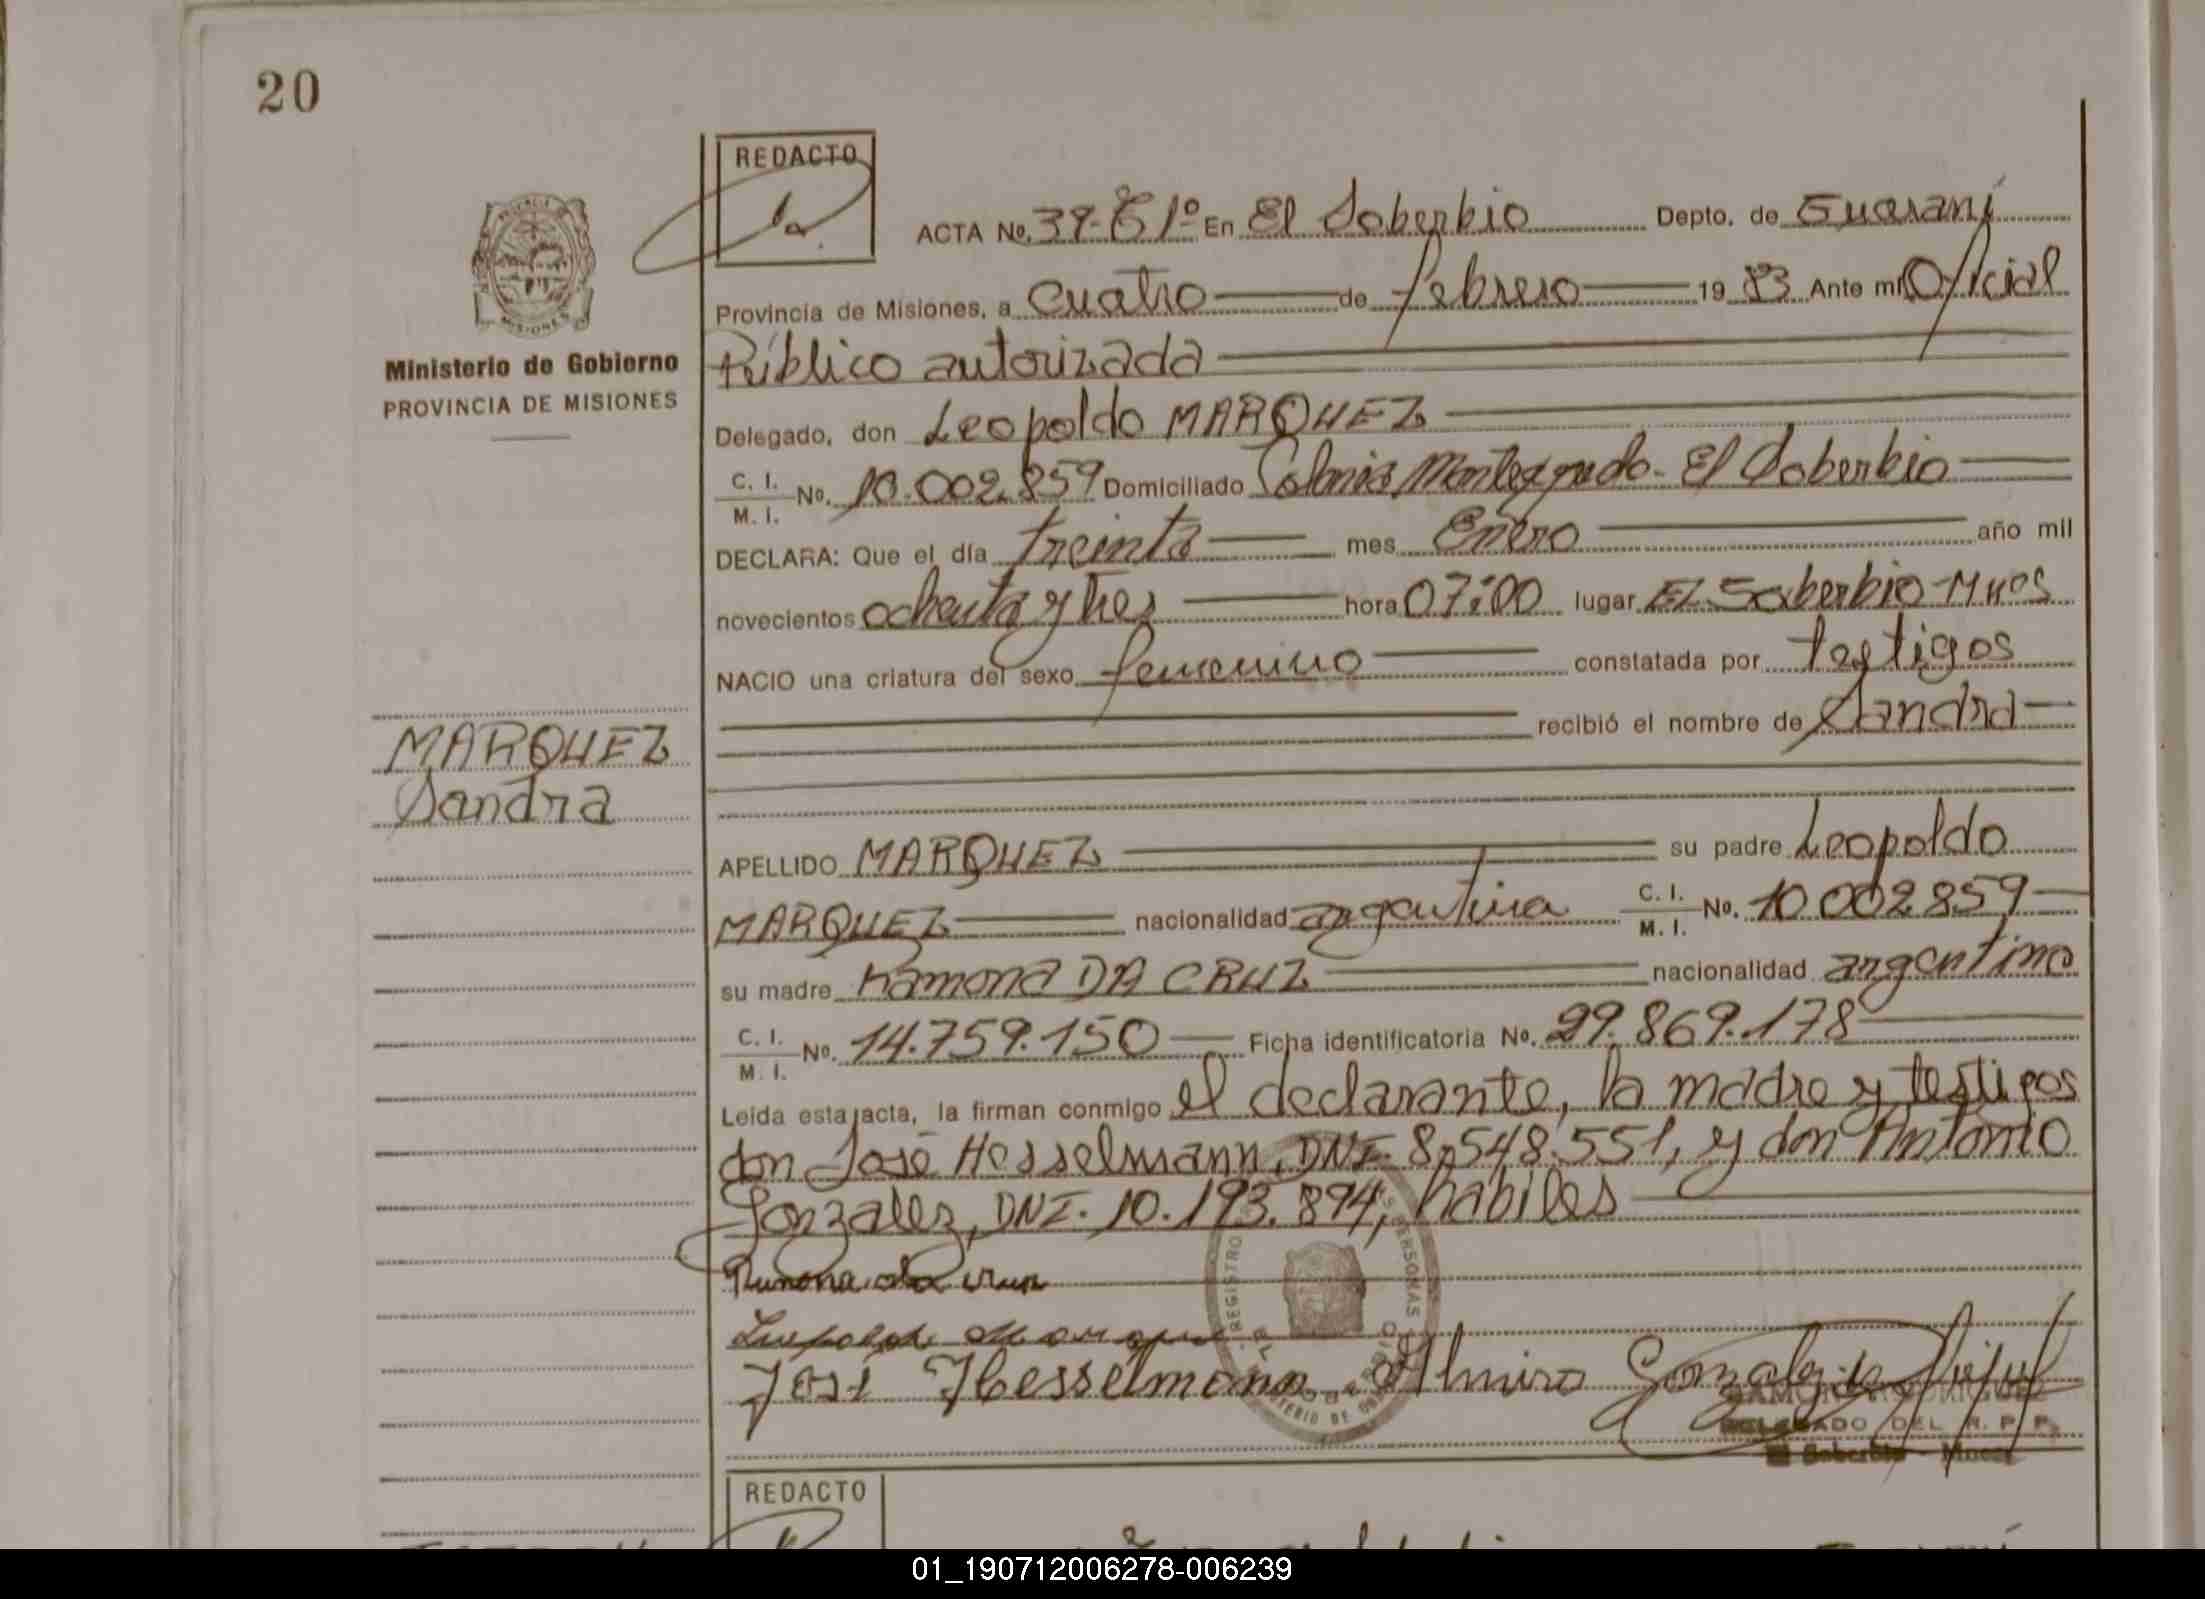 20
REDACTO
ACTA No. 39- T 1º En El Soberbio Depto. de Guaraní
Provincia de Misiones, a Cuatro de febrero 19 83 Ante mí Oficial
Ministerio de Gobierno
PROVINCIA DE MISIONES
Público autorizada
Delegado, don Leopoldo MARQUEZ
C. I.
M. I. No. 10.002.859 Domiciliado Colonia Monteagudo- El Soberbio
DECLARA: Que el día treinta mes Enero año mil
novecientos ochenta y tres hora 07:00 lugar El Soberbio-Mnes
NACIO una criatura del sexo femenino constatada por testigos
recibió el nombre de Sandra
MARQUEZ
Sandra
APELLIDO MARQUEZ su padre Leopoldo
MARQUEZ nacionalidad argentina C. I.
M. I. No. 10.002.859
su madre Ramona DA CRUZ nacionalidad argentina
C. I.
M. I. No. 14.759.150 Ficha identificatoria No. 29.869.178
Leída esta acta, la firman conmigo el declarante, la madre y testigos
don José Hesselmann, DNI- 8.548.551, y don Antonio
Gonzalez, DNI. 10.193.894, hábiles
Ramona da crus
José Hesselmann Gonzalez
DELEGADO DEL R. P. P.
El Soberbio - Mnes
REDACTO
01_190712006278-006239